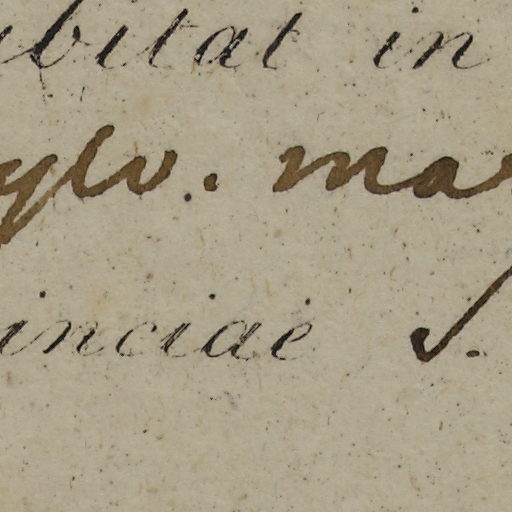 bitat in
ylv. ma
inciae S.